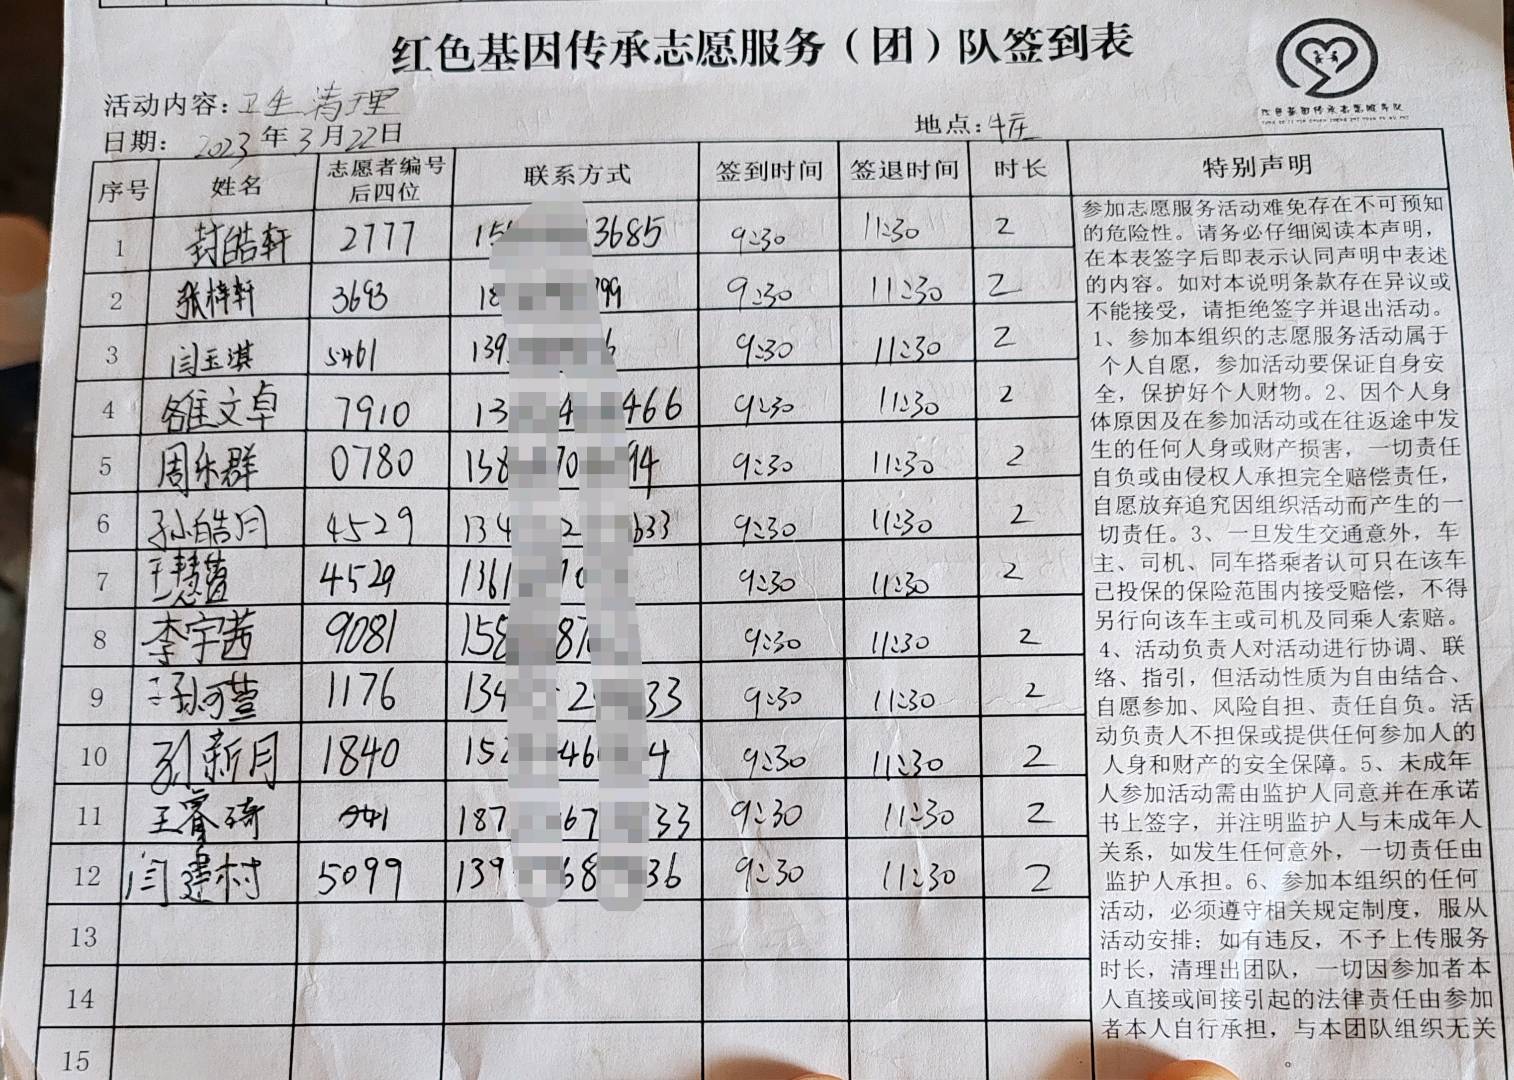 红色基因传承志愿服务（团）队签到表
红色基因传承志愿服务队
活动内容：卫生清理
日期： 2023年3月22日
地点：
序号 姓名 志愿者编号后四位 联系方式 签到时间 签退时间 时长 特别声明
1 封皓轩 2777 15 3685 9:30 11:30 2
2 张梓轩 3693 18 799 9:30 11:30 2
3 闫玉淇 5461 139 6 9:30 11:30 2
4 文卓 7910 13 4 466 9:30 11:30 2
5 周乐群 0780 158 70 94 9:30 11:30 2
6 孙皓月 4529 134 2 633 9:30 11:30 2
7 王慧萱 4529 1361 70 9:30 11:30 2
8 李宇茜 9081 158 87 9:30 11:30 2
9 孙可萱 1176 134 2 33 9:30 11:30 2
10 孙新月 1840 152 46 4 9:30 11:30 2
11 王睿琦 187 67 33 9:30 11:30 2
12 闫建村 5099 139 68 36 9:30 11:30 2
13
14
15
参加志愿服务活动难免存在不可预知
的危险性。请务必仔细阅读本声明，
在本表签字后即表示认同声明中表述
的内容。如对本说明条款存在异议或
不能接受，请拒绝签字并退出活动。
1、参加本组织的志愿服务活动属于
个人自愿，参加活动要保证自身安
全，保护好个人财物。2、因个人身
体原因及在参加活动或在往返途中发
生的任何人身或财产损害，一切责任
自负或由侵权人承担完全赔偿责任，
自愿放弃追究因组织活动而产生的一
切责任。3、一旦发生交通意外，车
主、司机、同车搭乘者认可只在该车
已投保的保险范围内接受赔偿，不得
另行向该车主或司机及同乘人索赔。
4、活动负责人对活动进行协调、联
络、指引，但活动性质为自由结合、
自愿参加、风险自担、责任自负。活
动负责人不担保或提供任何参加人的
人身和财产的安全保障。5、未成年
人参加活动需由监护人同意并在承诺
书上签字，并注明监护人与未成年人
关系，如发生任何意外，一切责任由
监护人承担。6、参加本组织的任何
活动，必须遵守相关规定制度，服从
活动安排；如有违反，不予上传服务
时长，清理出团队，一切因参加者本
人直接或间接引起的法律责任由参加
者本人自行承担，与本团队组织无关
。